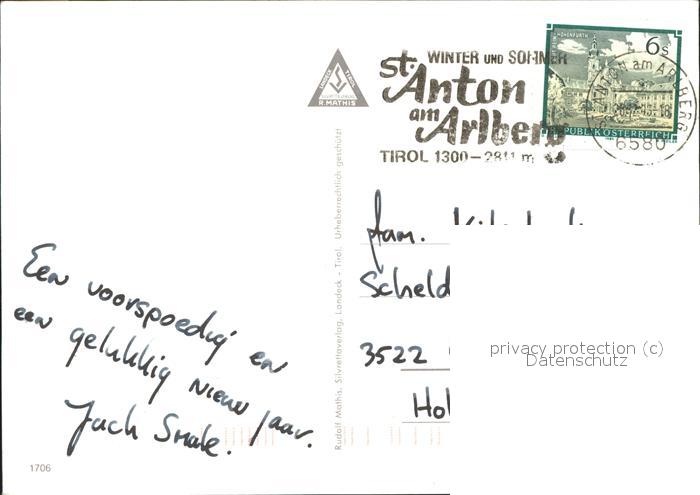 WINTER UND SOMMER
St. Anton
am
Arlberg
TIROL 1300–2811 m
6 S
REPUBLIK ÖSTERREICH
ST. ANTON am ARLBERG
6580
LANDECK TIROL
R. MATHIS
Rudolf Mathis, Silvrettaverlag, Landeck - Tirol. Urheberrechtlich geschützt
fam.
Scheld
3522
Hol
privacy protection (c)
Datenschutz
Een voorspoedig en
een gelukkig nieuw jaar.
Jach Smale.
1706